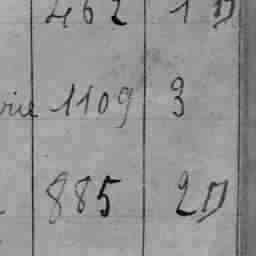 462 1 D
vrie 1109 3
885 2 D